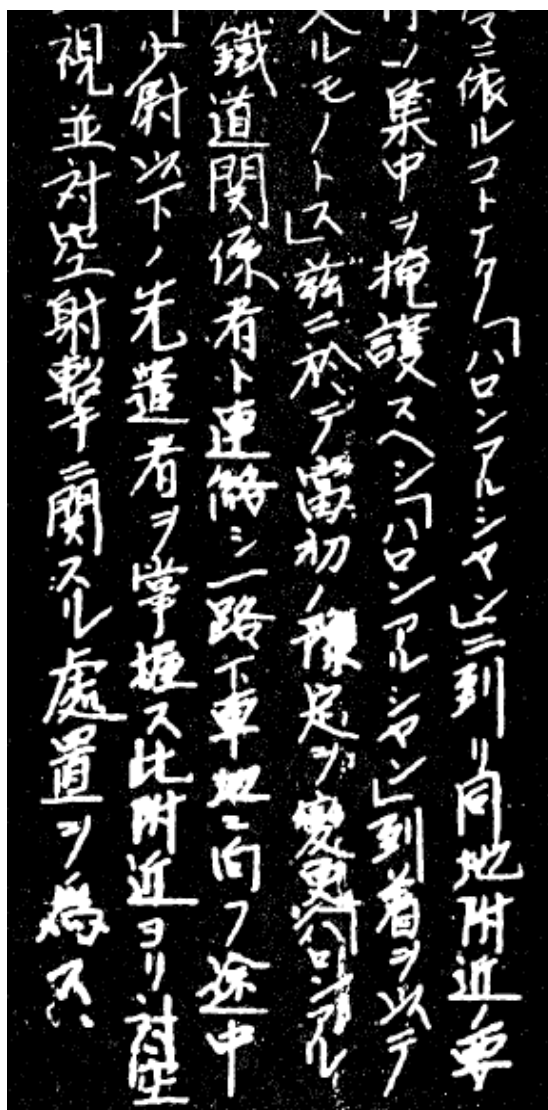 マニ依ルコトナク「ハロンアルシャン」ニ到リ同地附近ノ要
ノ集中ヲ掩護スヘシ「ハロンアルシャン」到着ヲ以テ
ヘルモノトス」茲ニ於テ當初ノ豫定ヲ変更「ハロンアル
鐵道関係者ト連絡シ一路下車地ニ向フ途中
少尉以下ノ先遣者ヲ掌握ス此附近ヨリ対空
視並対空射撃ニ関スル處置ヲ為ス